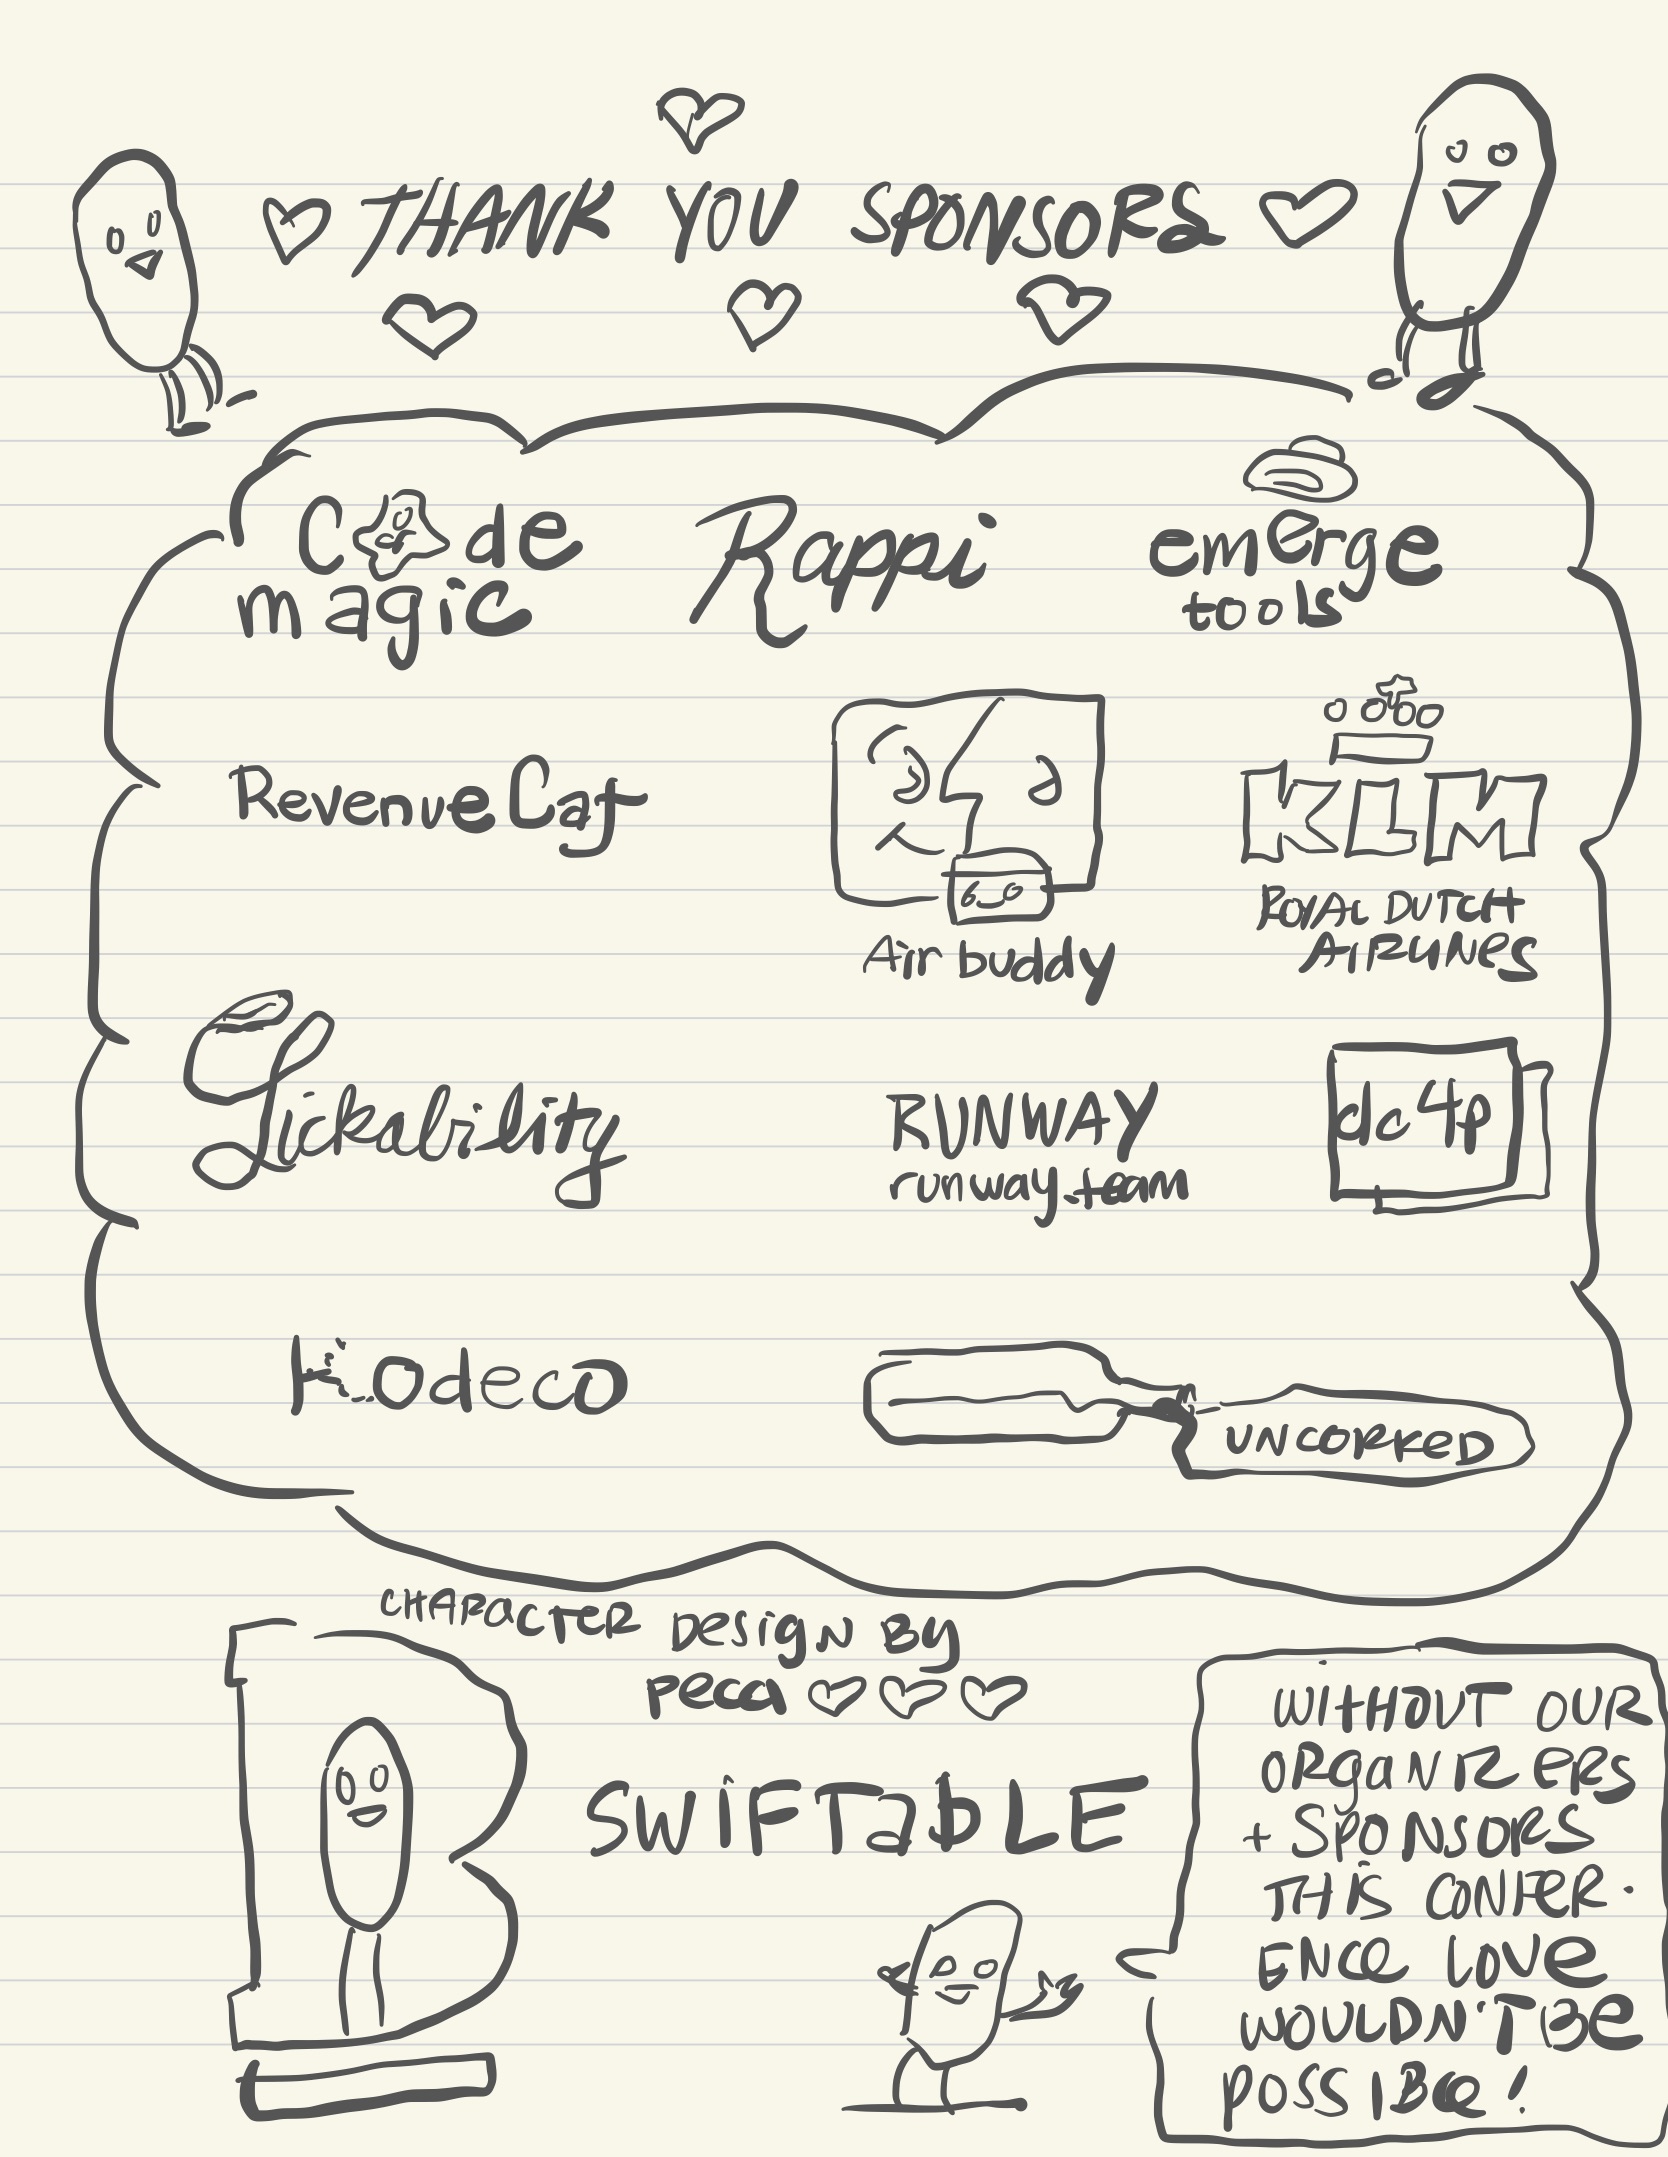 THANK YOU SPONSORS
Code
magic
Rappi
emerge
tools
RevenueCat
6.0
Air buddy
KLM
ROYAL DUTCH
AIRLINES
Lickability
RUNWAY
runway.team
dc4p
Kodeco
UNCORKED
CHARACTER DESIGN BY
peca
SWIFTABLE
WITHOUT OUR
ORGANIZERS
+ SPONSORS
THIS CONFER-
ENCE LOVE
WOULDN'T BE
POSSIBLE!